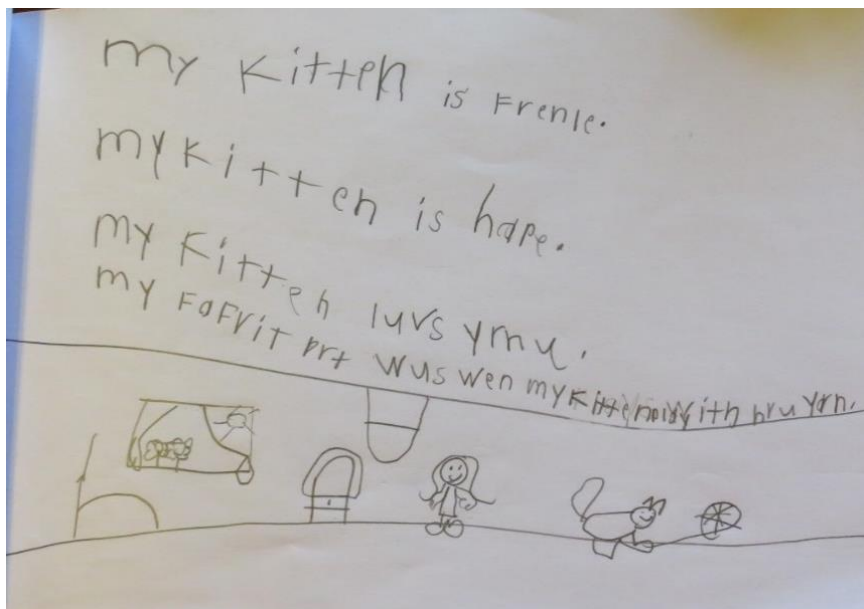 my kitten is Frenle.
my kitten is hape.
my kitten luvs ymu.
my FaFvit prt wus wen my kitten with hru yrn.